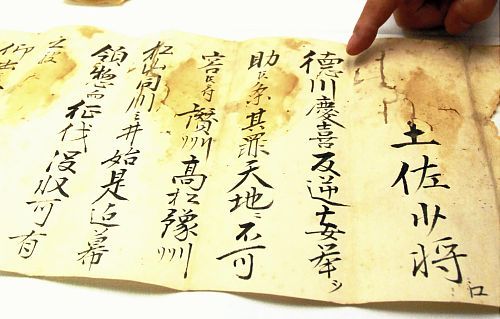 土佐少将
徳川慶喜反逆妄挙ヲ
助候条其罪天地ニ不可
容候付讃州高松豫州
松山同川之井始是迄幕
領惣而征伐没収可有
之候
仰